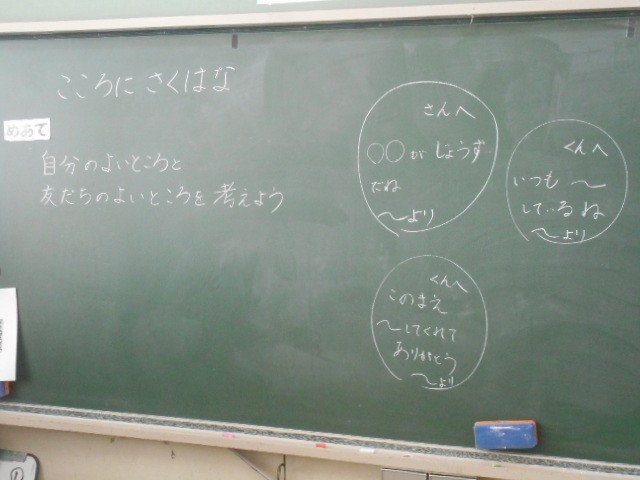 こころに さくはな
めあて
自分のよいところと
友だちのよいところを 考えよう
さんへ
○○が じょうず
だね
〜より
くんへ
いつも 〜
しているね
〜より
くんへ
このまえ
〜してくれて
ありがとう
〜より